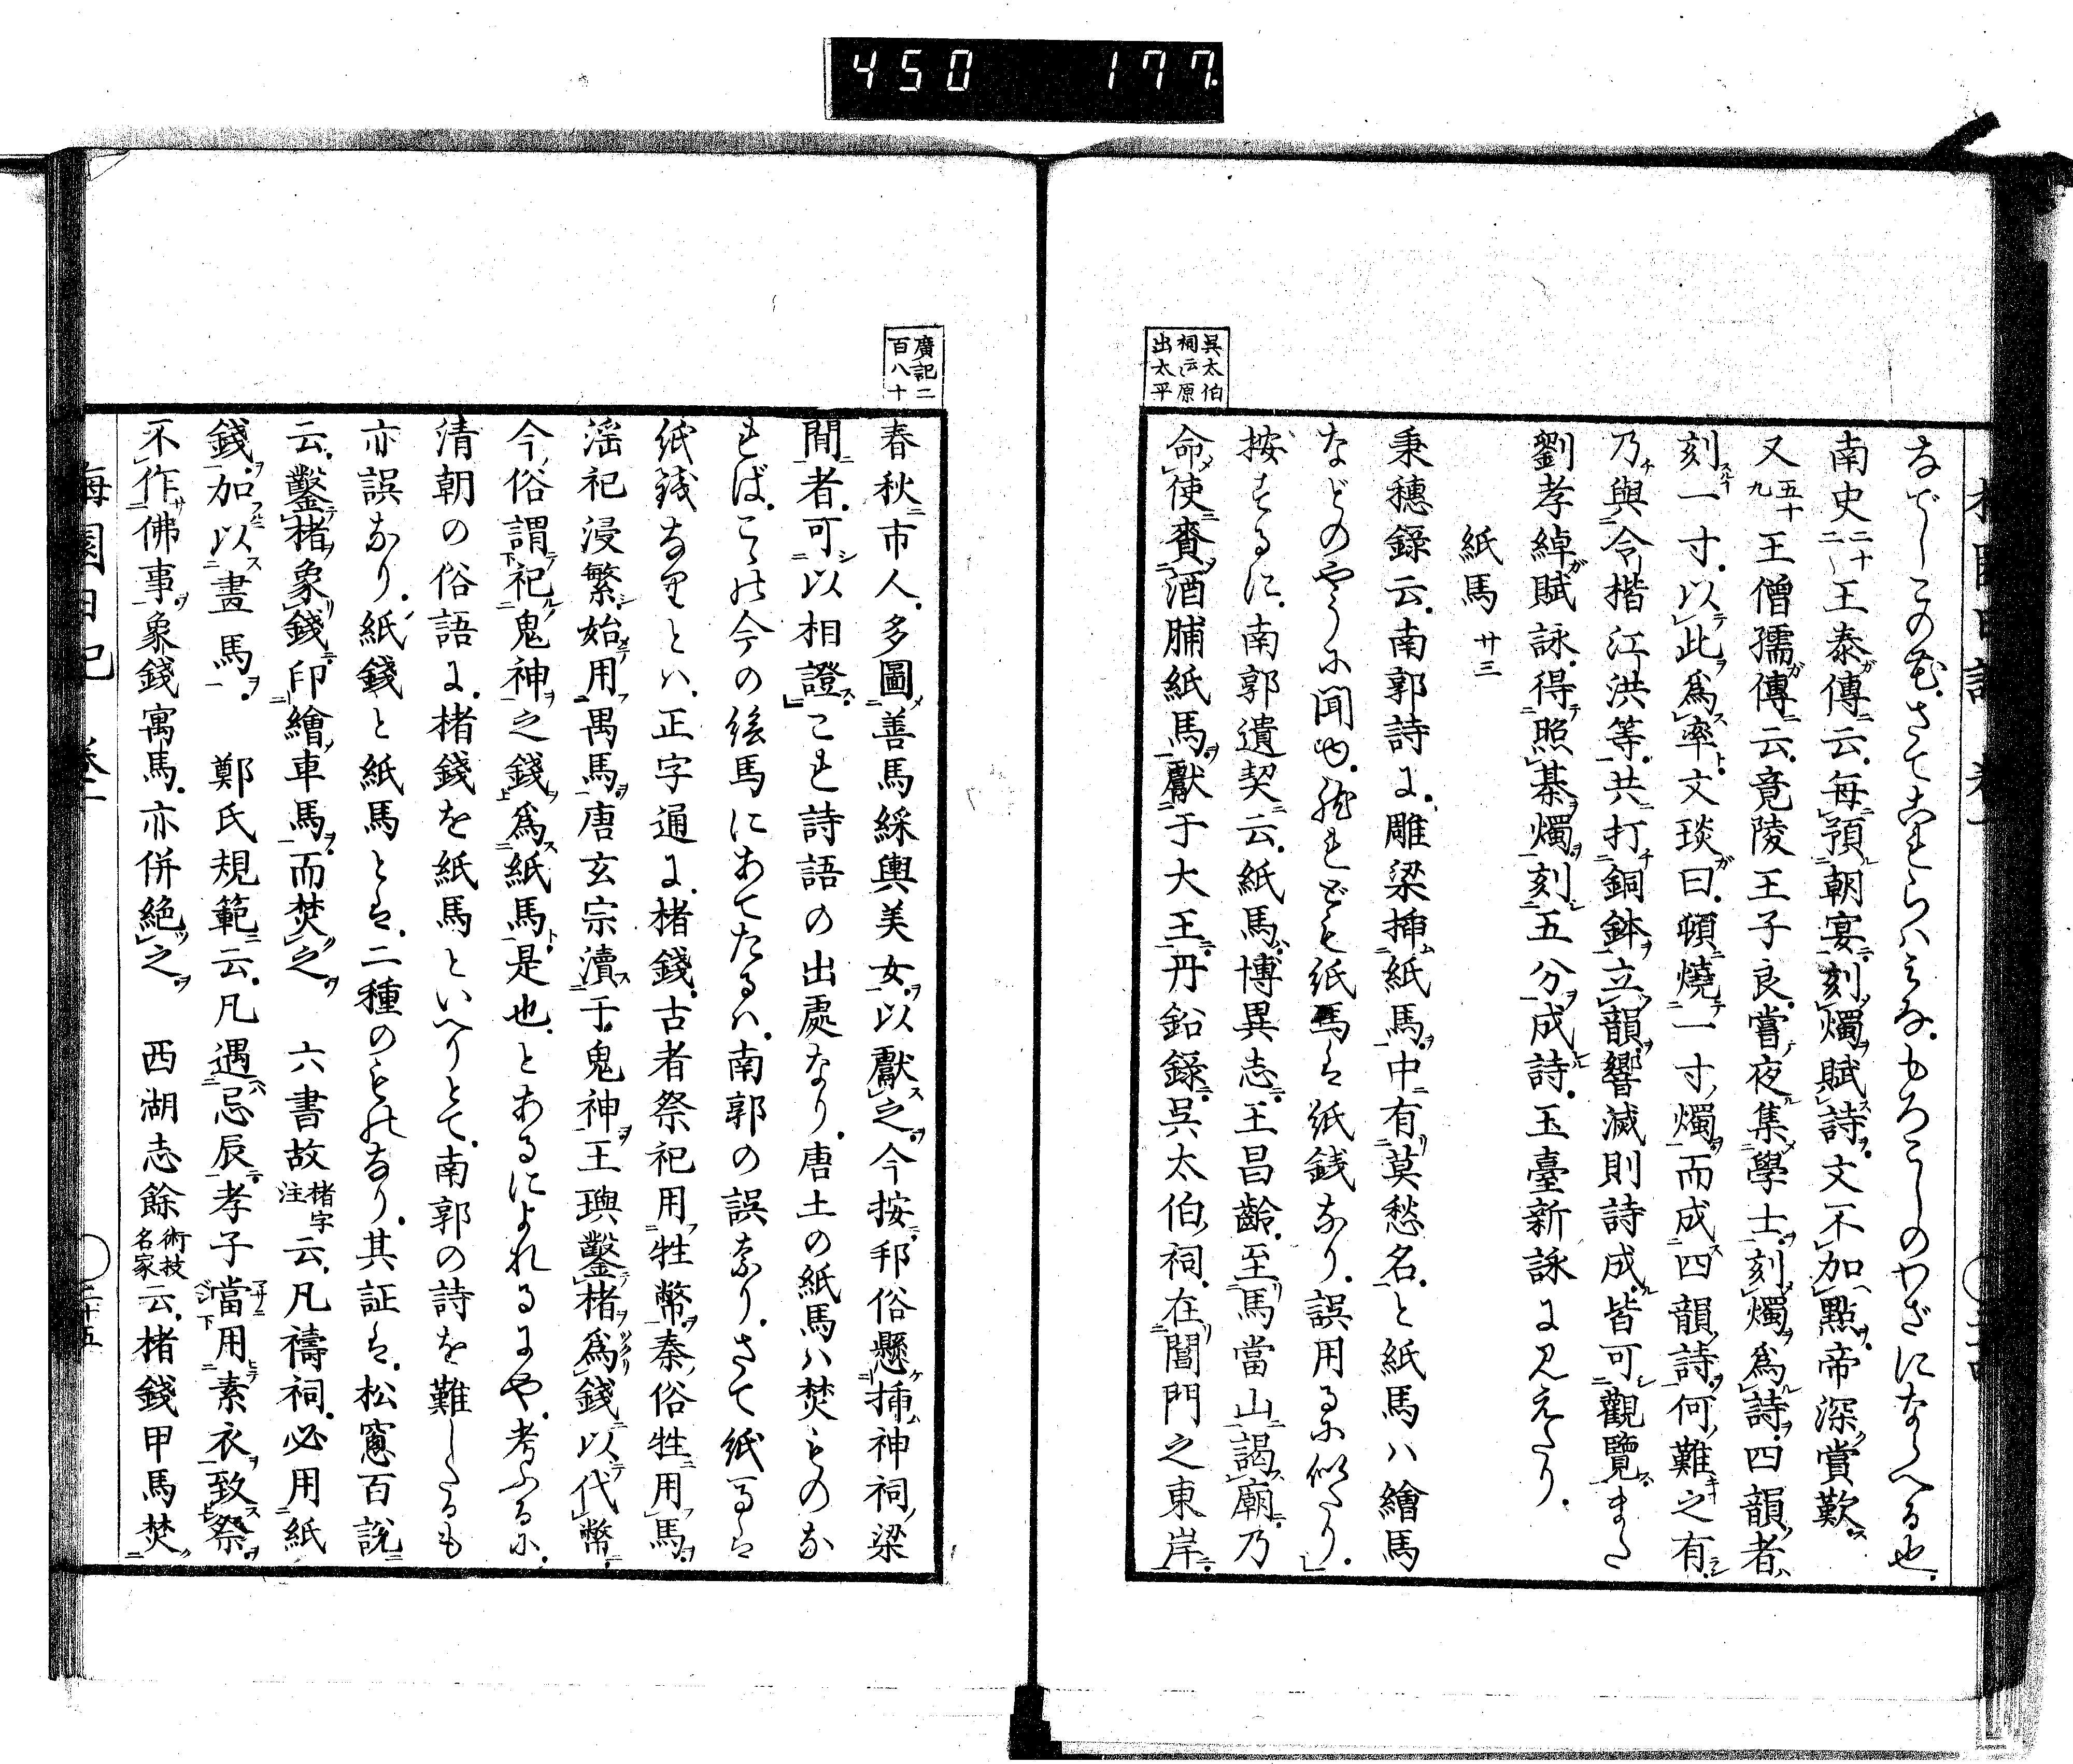 450 177
なでしこの花。さてこれらハミな。もろこしのわざにならへる也。
南史二十二王泰傳云。毎預朝宴刻燭賦詩。文不加點帝深賞歎。
又五十九王僧孺傳云。竟陵王子良嘗夜集學士刻燭爲詩。四韻者
刻一寸。以此爲率。文琰曰。頓燒一寸燭而成四韻詩何難之有。
乃與令楷江洪等。共打銅鉢立韻響滅則詩成。皆可觀覽。また
劉孝綽賦詠。得照棊燭刻五分成詩。玉臺新詠に見えたり。
紙馬 廿三
秉穗錄云。南郭詩に。雕梁挿紙馬。中有莫愁名。と紙馬ハ繪馬
などのやうに聞ゆ。然れども紙馬は紙銭なり。誤用るに似たり。
按ずるに。南郭遺契云。紙馬。博異志。王昌齡。至馬當山謁廟。乃
命使賷酒脯紙馬。獻于大王。丹鉛錄。呉太伯祠。在閶門之東岸。
呉太伯
祠云々原
出太平
廣記二
百八十
春秋市人。多圖善馬綵輿美女。以獻之。今按。邦俗懸挿神祠梁
間者。可以相證。これ詩語の出處なり。唐土の紙馬ハ焚ものな
れば。こゝは今の繪馬にあてたるハ。南郭の誤なり。さて紙馬は
紙銭なりとハ。正字通に。楮錢。古者祭祀用牲幣。秦俗牲用馬。
淫祀浸繁。始用禺馬。唐玄宗瀆于鬼神。王璵鑿楮爲錢以代幣。
今俗謂祀鬼神之錢爲紙馬是也。とあるによれるにや。考ふるに。
清朝の俗語に。楮錢を紙馬といへりとて。南郭の詩を難したるも
亦誤なり。紙錢と紙馬とは。二種のものなり。其証は。松窻百說
云。鑿楮象錢。印繪車馬。而焚之。 六書故楮字注云。凡禱祠。必用紙
錢。加以畫馬。 鄭氏規範云。凡遇忌辰。孝子當用素衣致祭。
不作佛事。象錢寓馬。亦併絶之。 西湖志餘術技名家云。楮錢甲馬焚
梅園日記 卷一 二十五